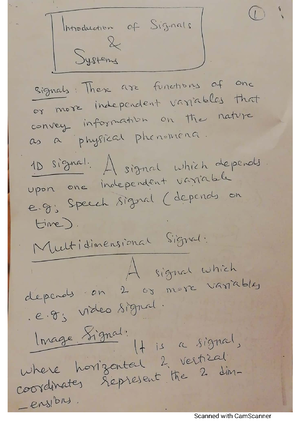 1
Introduction of Signals
&
Systems
Signals: These are functions of one
or more independent variables that
convey information on the nature
as a physical phenomena.
1D Signal: A signal which depends
upon one independent variable
e.g; Speech signal (depends on
time).
Multidimensional Signal:
A signal which
depends on 2 or more variables
e.g; video signal.
Image Signal:
It is a signal,
where horizontal 2 vertical
coordinates represent the 2 dim-
-ensions.
Scanned with CamScanner